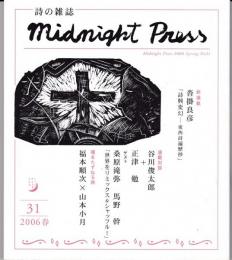 詩の雑誌
midnight press
Midnight Press 2006 Spring No31
新連載
沓掛良彦
「詩朝変幻—東西詩遍歴抄」
連載対談
谷川俊太郎
+
正津 勉
ゲスト
桑原滝弥 馬野 幹
「世界をリミックス&シャッフル!」
福本順次×山本小月
31
2006 春